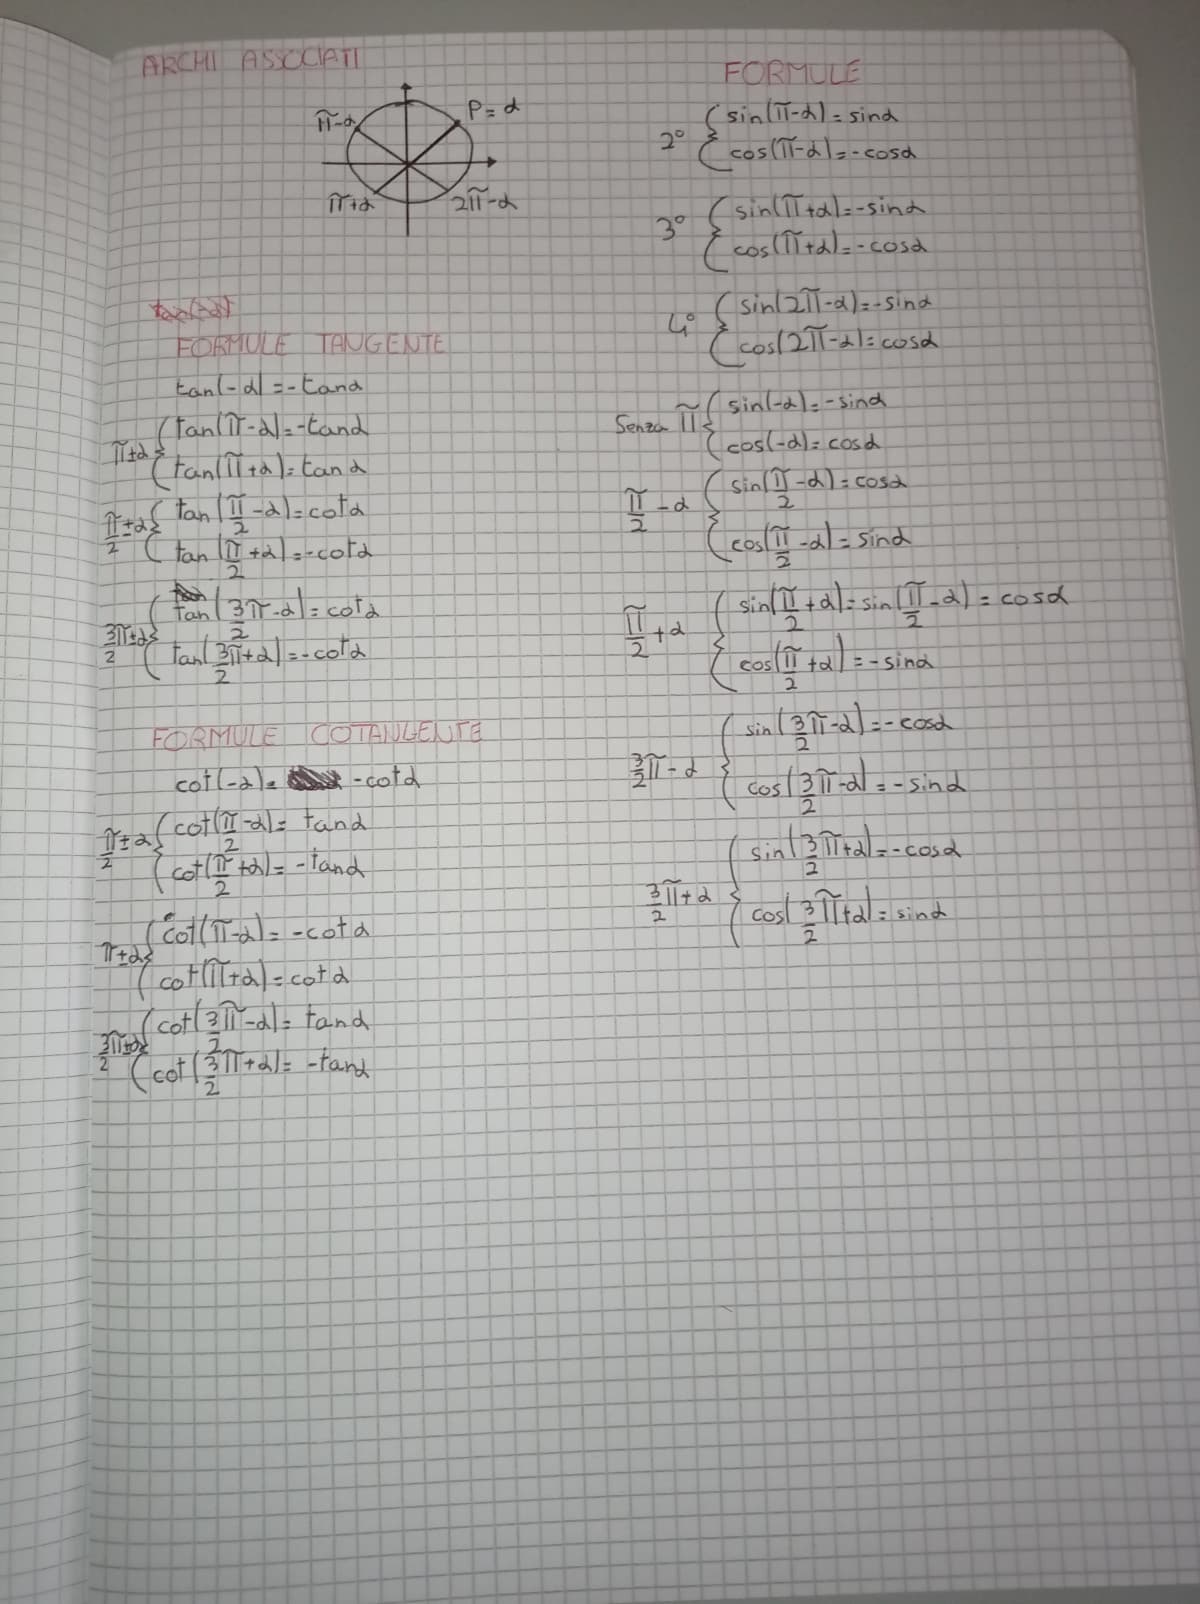 ARCHI ASSOCIATI
π-α
P=α
π+α
2π-α
tan(-α)
FORMULE TANGENTE
tan(-α)=-tanα
π±α { tan(π-α)=-tanα
tan(π+α)=tanα
π/2±α { tan(π/2-α)=cotα
tan(π/2+α)=-cotα
3π/2±α { tan(3/2π-α)=cotα
tan(3/2π+α)=-cotα
FORMULE COTANGENTE
cot(-α)= -cotα
π/2±α { cot(π/2-α)= tanα
cot(π/2+α)= -tanα
π±α { cot(π-α)= -cotα
cot(π+α)=cotα
3π/2±α { cot(3/2π-α)= tanα
cot(3/2π+α)= -tanα
FORMULE
2° { sin(π-α)=sinα
cos(π-α)=-cosα
3° { sin(π+α)=-sinα
cos(π+α)=-cosα
4° { sin(2π-α)=-sinα
cos(2π-α)=cosα
Senza π { sin(-α)=-sinα
cos(-α)=cosα
π/2-α { sin(π/2-α)=cosα
cos(π/2-α)=sinα
π/2+α { sin(π/2+α)=sin(π/2-α)=cosα
cos(π/2+α)=-sinα
3/2π-α { sin(3/2π-α)=-cosα
cos(3/2π-α)=-sinα
3/2π+α { sin(3/2π+α)=-cosα
cos(3/2π+α)=sinα